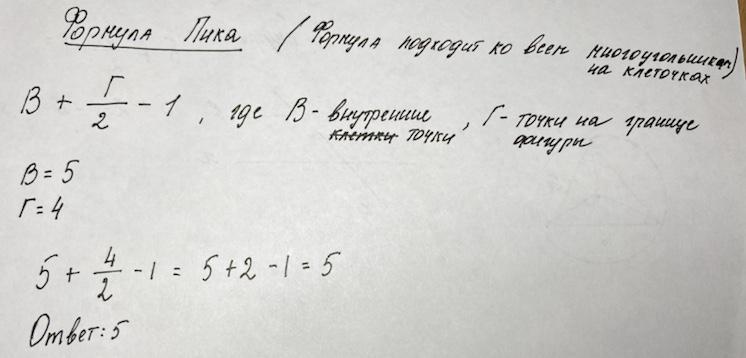 Формула Пика (Формула подходит ко всем многоугольникам)
на клеточках
В + Г/2 - 1, где В - внутренние клетки точки, Г - точки на границе фигуры
В = 5
Г = 4
5 + 4/2 - 1 = 5 + 2 - 1 = 5
Ответ: 5